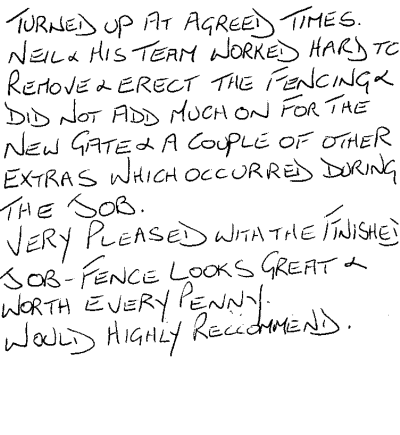 TURNED UP AT AGREED TIMES.
NEIL & HIS TEAM WORKED HARD TO
REMOVE & ERECT THE FENCING &
DID NOT ADD MUCH ON FOR THE
NEW GATE & A COUPLE OF OTHER
EXTRAS WHICH OCCURRED DURING
THE JOB.
VERY PLEASED WITH THE FINISHED
JOB - FENCE LOOKS GREAT &
WORTH EVERY PENNY.
WOULD HIGHLY RECCOMMEND.